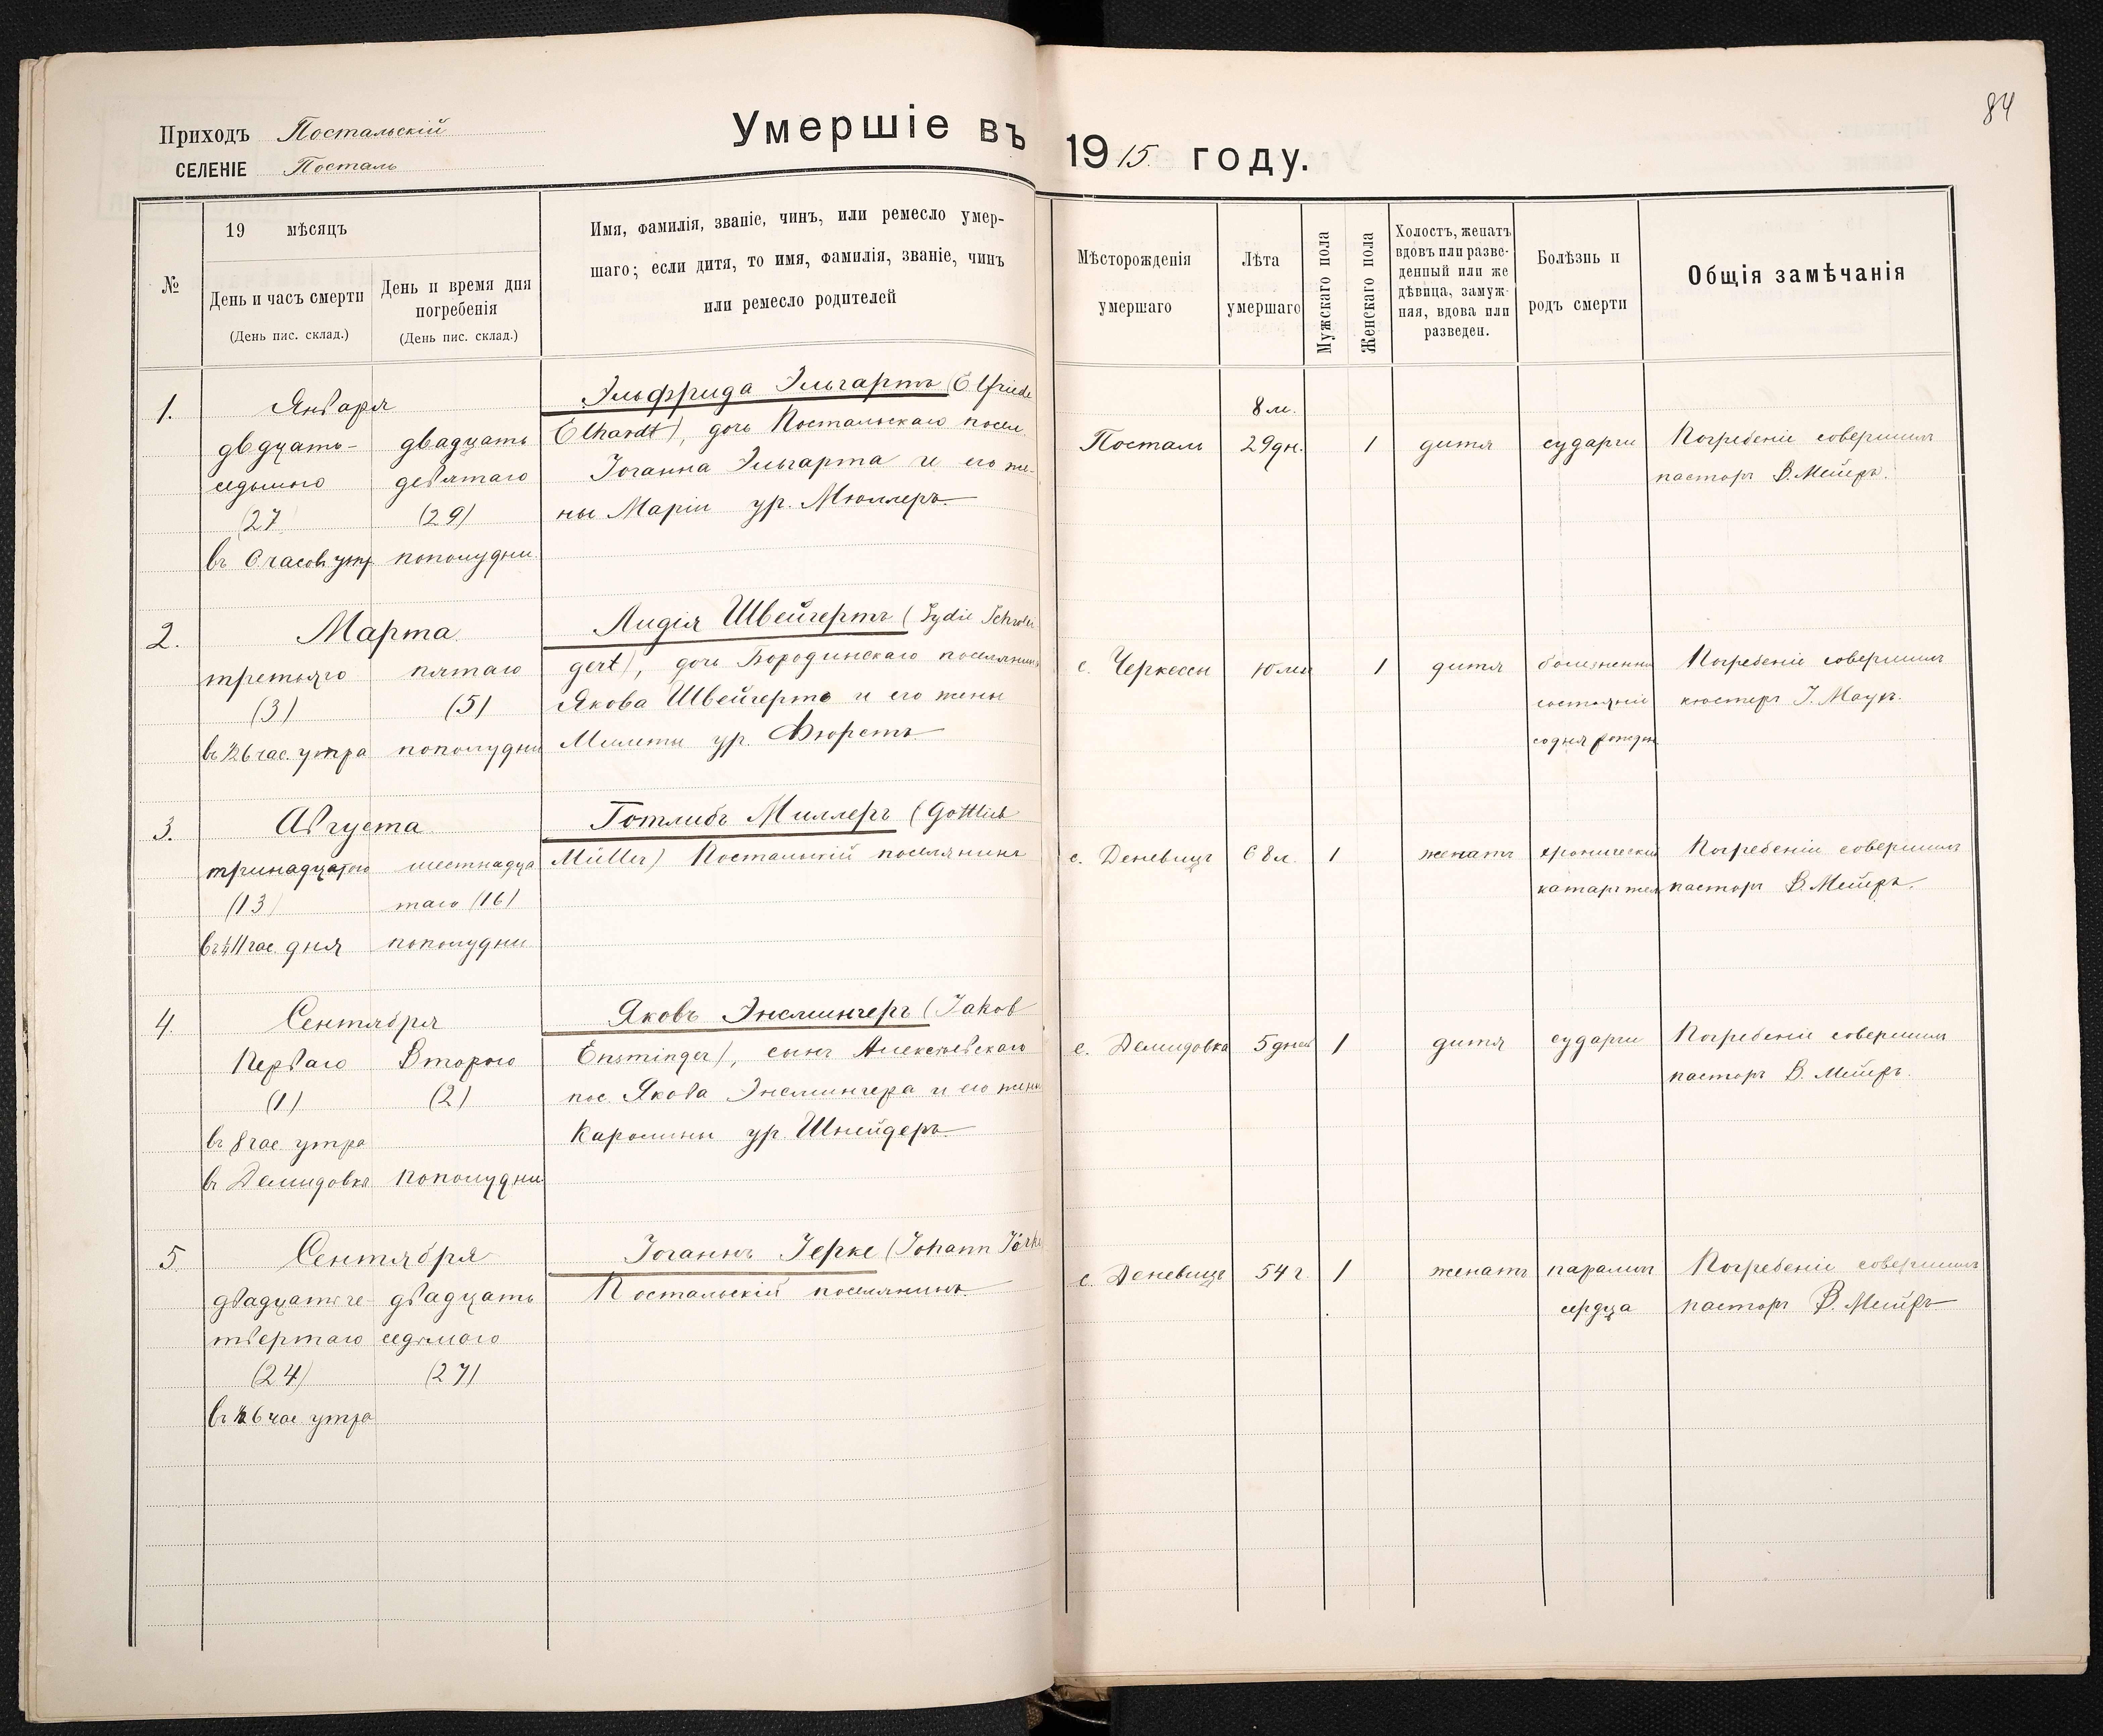 84
Приходъ Постальскій
СЕЛЕНІЕ Посталь
Умершіе въ 1915. году.
№
19 мѣсяцъ
День и часъ смерти
(День пис. склад.)
День и время дня
погребенія
(День пис. склад.)
Имя, фамилія, званіе, чинъ, или ремесло умер-
шаго; если дитя, то имя, фамилія, званіе, чинъ
или ремесло родителей
Мѣсторожденія
умершаго
Лѣта
умершаго
Мужскаго пола
Женскаго пола
Холостъ, женатъ
вдовъ или разве-
денный или же
дѣвица, замуж-
няя, вдова или
разведен.
Болѣзнь и
родъ смерти
Общія замѣчанія
1.
Января
двдцать-
седьмого
(27
въ 6 часовъ утр
двадцать
девятаго
(29)
пополудни
Эльфрида Эльгартъ (Elfriede
Elhardt), дочь Постальскаго посел.
Іоганна Эльгарта и его же-
ны Маріи ур. Мюллеръ
Посталь
8 м.
29дн.
1
дитя
судорги
Погребеніе совершилъ
пасторъ В. Мейеръ.
2.
Марта
третьяго
(3)
въ ½6 час. утра
пятаго
(5)
пополудни
Лидія Швейгертъ (Lydie Schwei
gert), дочь Бородинскаго поселянина
Якова Швейгерта и его жены
ур. Фюрстъ
с. Черкессы
1
дитя
болѣзненн
состояніе
со дня рожден
Погребеніе совершилъ
кюстеръ І. Маукъ.
3.
Августа
тринадцатого
(13)
час. дня
шестнадца
таго (16)
пополудни
Готлибъ Миллеръ (Gottlieb
Müller) Постальскій поселянинъ
с. Деневицъ
68л.
1
женатъ
хронический
катаръ жел
Погребеніе совершилъ
пасторъ В. Мейеръ.
4.
Сентября
Перваго
(1)
въ 8 час. утра
въ Демидовка
Второго
(2)
пополудни
Яковъ Энсмингеръ (Jakob
Ensminger), сынъ Алексѣевскаго
пос. Якова Энсмингера и его жены
Каролины ур. Шнейдеръ
с. Демидовка
5 дней
1
дитя
судорги
Погребеніе совершилъ
пасторъ В. Мейеръ.
5
Сентября
двадцать че-
твертаго
(24)
въ ½6 час утра
двадцать
седьмого
(27)
Іоганнъ Іерке (Johann Jörke
Постальскій поселянинъ
с. Деневицъ
54 г.
1
женатъ
параличъ
сердца
Погребеніе совершилъ
пасторъ В. Мейеръ